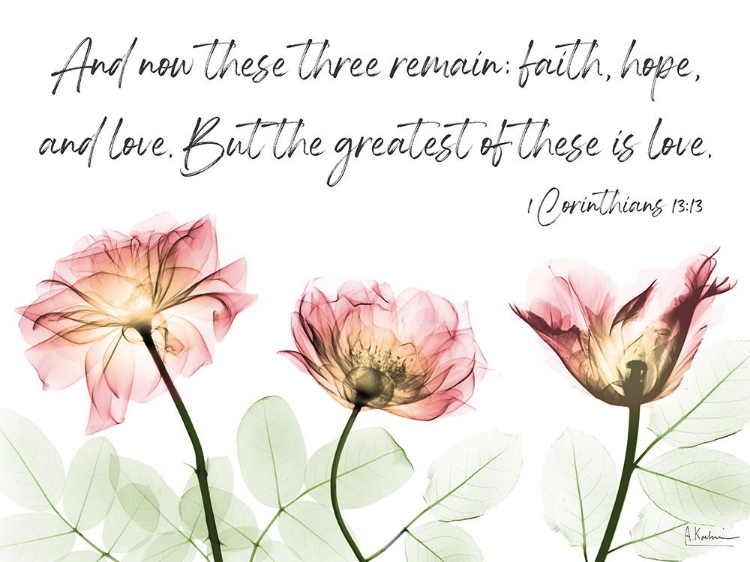 And now these three remain: faith, hope,
and love. But the greatest of these is love.
1 Corinthians 13:13